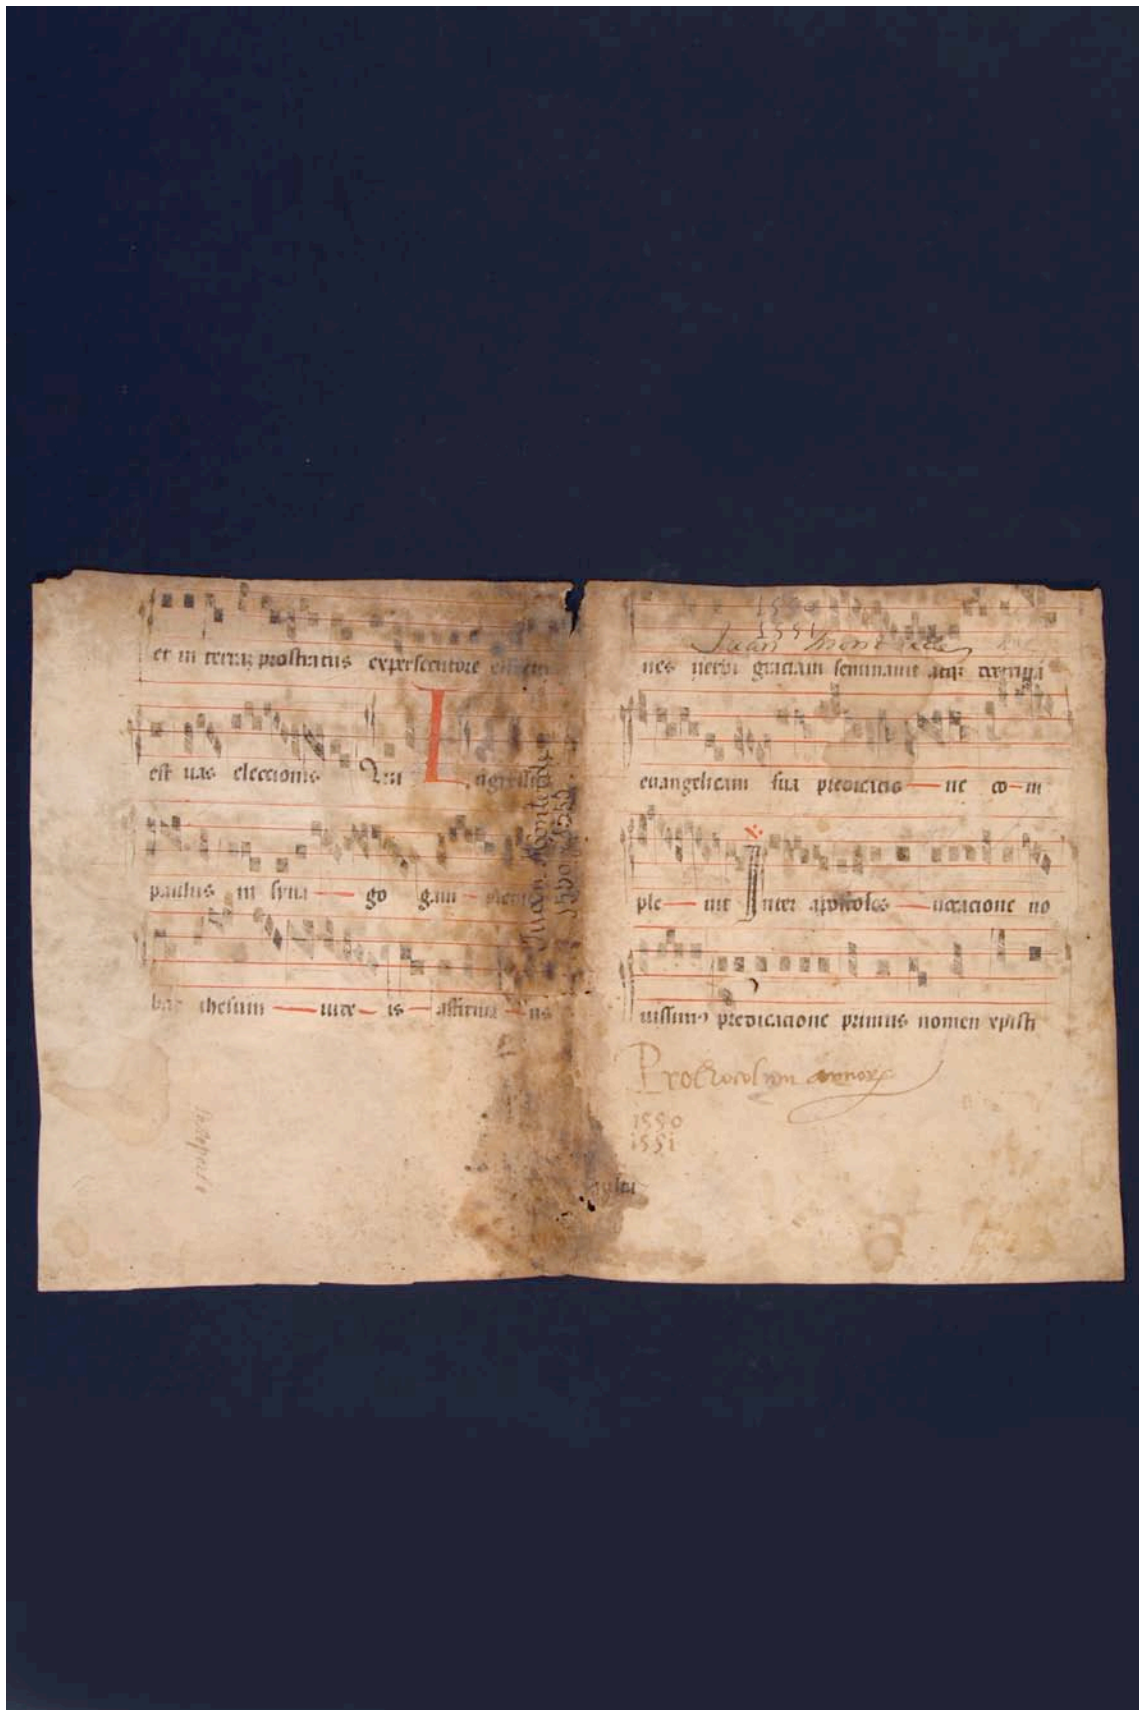 et in terraz prostratus expersecutore effectus
est uas eleccionis Qui
I ngressus
paulus in sina go gam
bat ihesum iude is affirma ns
Juan Monterde
1550 1551
1550
1551
Juan
nes uerbi graciam seminauit atq;
euangelicam sua predicacio ne co m
ple uit Inter apostolos uocacione no
uissimus predicacione primus nomen xpisti
Prothocolum annorum
1550
1551